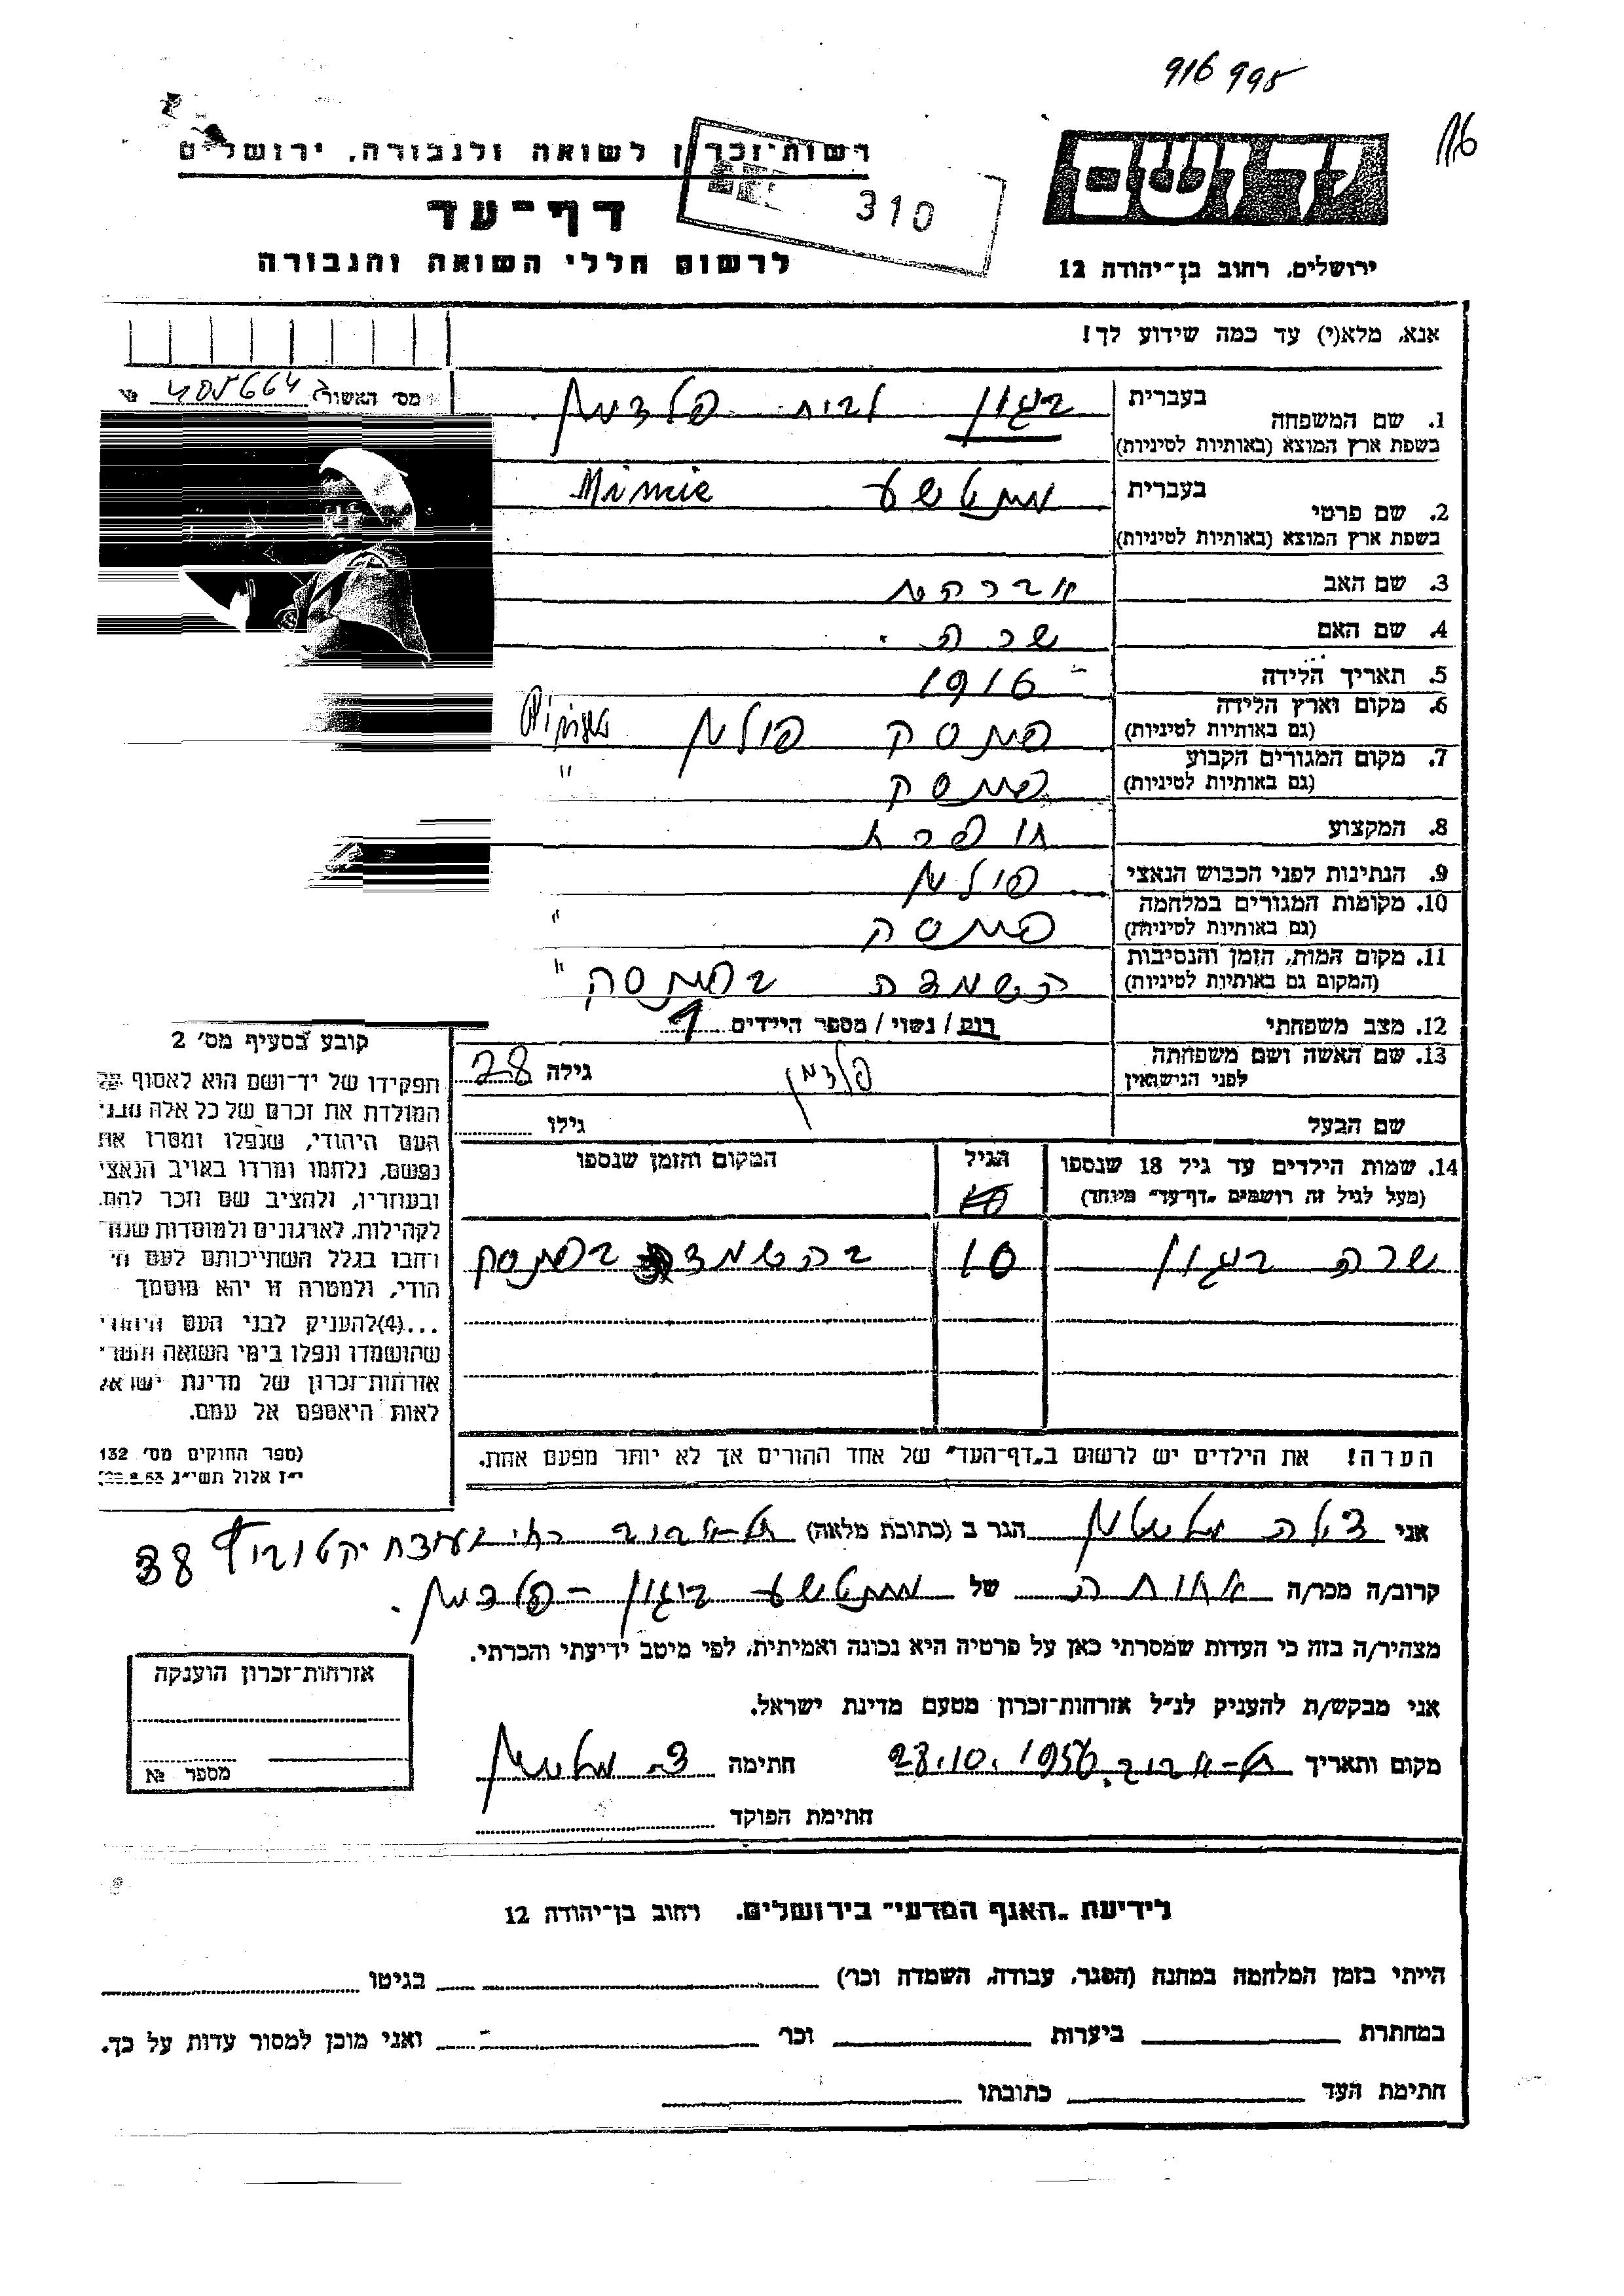 916 995
116
רשות־זכרון לשואה ולגבורה, ירושלים
310
דף־עד
לרשום חללי השואה והגבורה
ירושלים, רחוב בן־יהודה 12
אנא, מלא(י) עד כמה שידוע לך!
מס׳ האשור
1. שם המשפחה בעברית
בשפת ארץ המוצא (באותיות לטיניות)
2. שם פרטי בעברית Minie
בשפת ארץ המוצא (באותיות לטיניות)
3. שם האב אברהם
4. שם האם שרה
5. תאריך הלידה 1916
6. מקום וארץ הלידה פינסק פולין
(גם באותיות לטיניות)
7. מקום המגורים הקבוע פינסק "
(גם באותיות לטיניות)
8. המקצוע
9. הנתינות לפני הכבוש הנאצי פולין
10. מקומות המגורים במלחמה פינסק "
(גם באותיות לטיניות)
11. מקום המות, הזמן והנסיבות בפינסק "
(המקום גם באותיות לטיניות)
12. מצב משפחתי רוק / נשוי / מספר הילדים 1
13. שם האשה ושם משפחתה פלדמן גילה 28
לפני הנישואין
שם הבעל גילו
14. שמות הילדים עד גיל 18 שנספו הגיל המקום והזמן שנספו
(מעל לגיל זה רושמים „דף־עד״ מיוחד)
שרה ביגון 10 בהשמדה בפינסק
הערה! את הילדים יש לרשום ב„דף־העד״ של אחד ההורים אך לא יותר מפעם אחת.
קובע בסעיף מס׳ 2
תפקידו של יד־ושם הוא לאסוף אל
המולדת את זכרם של כל אלה מבני
העם היהודי, שנפלו ומסרו את
נפשם, נלחמו ומרדו באויב הנאצי
ובעוזריו, ולהציב שם וזכר להם,
לקהילות, לארגונים ולמוסדות שנח־
רבו בגלל השתייכותם לעם הי־
הודי, ולמטרה זו יהא מוסמך
...(4)להעניק לבני העם היהודי
שהושמדו ונפלו בימי השואה והמרי
אזרחות־זכרון של מדינת ישראל
לאות היאספם אל עמם.
(ספר החוקים מס׳ 132
י״ז אלול תשי״ג 28.8.53)
אני הגר ב (כתובת מלאה) תל־אביב
38
קרוב/ה מכר/ה אחותה של ביגון - פלדמן.
מצהיר/ה בזה כי העדות שמסרתי כאן על פרטיה היא נכונה ואמיתית, לפי מיטב ידיעתי והכרתי.
אני מבקש/ת להעניק לנ״ל אזרחות־זכרון מטעם מדינת ישראל.
מקום ותאריך תל-אביב, 23.10.1956 חתימה
חתימת הפוקד
אזרחות־זכרון הוענקה
מספר №
לידיעת „האגף המדעי״ בירושלים, רחוב בן־יהודה 12
הייתי בזמן המלחמה במחנה (הסגר, עבודה, השמדה וכר׳) בגיטו
במחתרת ביערות וכר׳ ואני מוכן למסור עדות על כך.
חתימת העד כתובתו